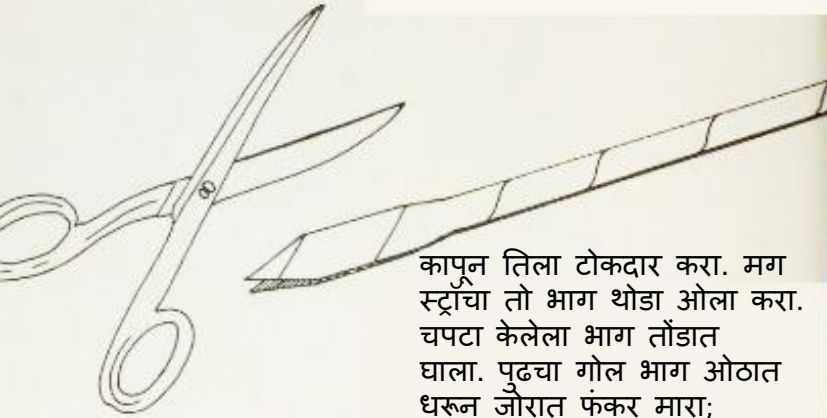 कापून तिला टोकदार करा. मग
स्ट्रॉचा तो भाग थोडा ओला करा.
चपटा केलेला भाग तोंडात
घाला. पुढचा गोल भाग ओठात
धरून जोरात फुंकर मारा;